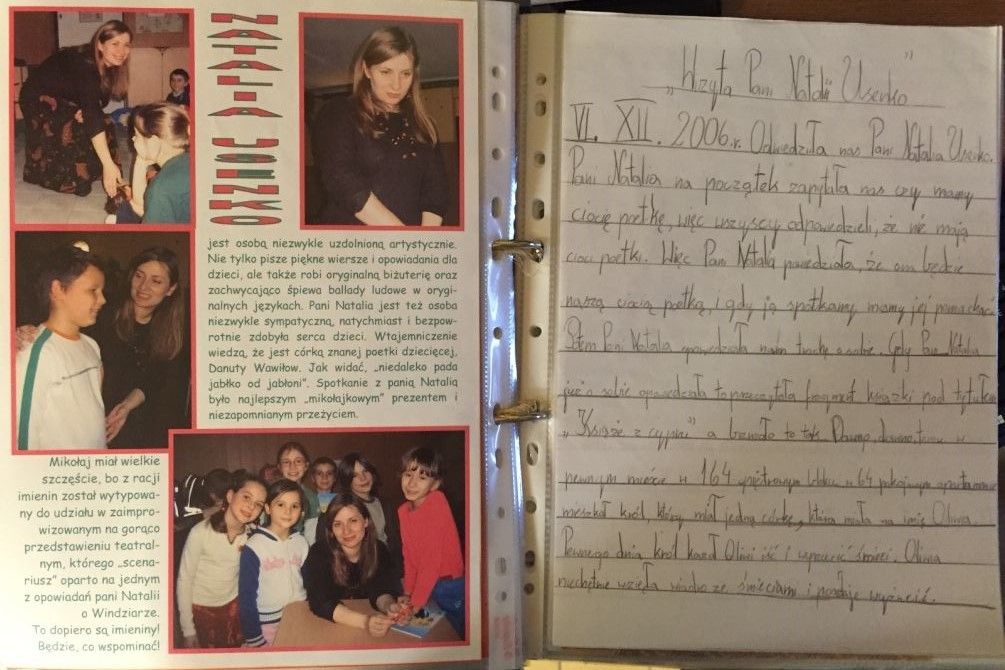 NATALIA USENKO
jest osobą niezwykle uzdolnioną artystycznie.
Nie tylko pisze piękne wiersze i opowiadania dla
dzieci, ale także robi oryginalną biżuterię oraz
zachwycająco śpiewa ballady ludowe w orygi-
nalnych językach. Pani Natalia jest też osobą
niezwykle sympatyczną, natychmiast i bezpow-
rotnie zdobyła serca dzieci. Wtajemniczenie
wiedzą, że jest córką znanej poetki dziecięcej,
Danuty Wawiłow. Jak widać, „niedaleko pada
jabłko od jabłoni”. Spotkanie z panią Natalią
było najlepszym „mikołajkowym” prezentem i
niezapomnianym przeżyciem.
Mikołaj miał wielkie
szczęście, bo z racji
imienin został wytypowa-
ny do udziału w zaimpro-
wizowanym na gorąco
przedstawieniu teatral-
nym, którego „scena-
riusz” oparto na jednym
z opowiadań pani Natalii
o Windziarze.
To dopiero są imieniny!
Będzie, co wspominać!
„Wizyta Pani Natalii Usenko”
VI. XII. 2006.r. Odwiedziła nas Pani Natalia Usenko.
Pani Natalia na początek zapytała nas czy mamy
ciocię poetkę, więc wszyscy odpowiedzieli, że nie mają
cioci poetki. Więc Pani Natalia powiedziała, że ona będzie
naszą ciocią poetką, i gdy ją spotkamy mamy jej
Potem Pani Natalia opowiedziała nam trochę o sobie. Gdy Pani Natalia
już o sobie opowiedziała to przeczytała fragment książki pod tytułem
„Książe z cypru” a brzmiało to tak. Dawno, dawno temu w
pewnym mieście w 164 piętrowym bloku w 64 pokojowym apartamencie
mieszkał król, który miał jedną córkę, która miała na imię Oliwia.
Pewnego dnia król kazał Oliwi iść i wyrzucić śmieci. Oliwia
niechętnie wzięła wiadro ze śmieciami i poszła je wyrzucić.